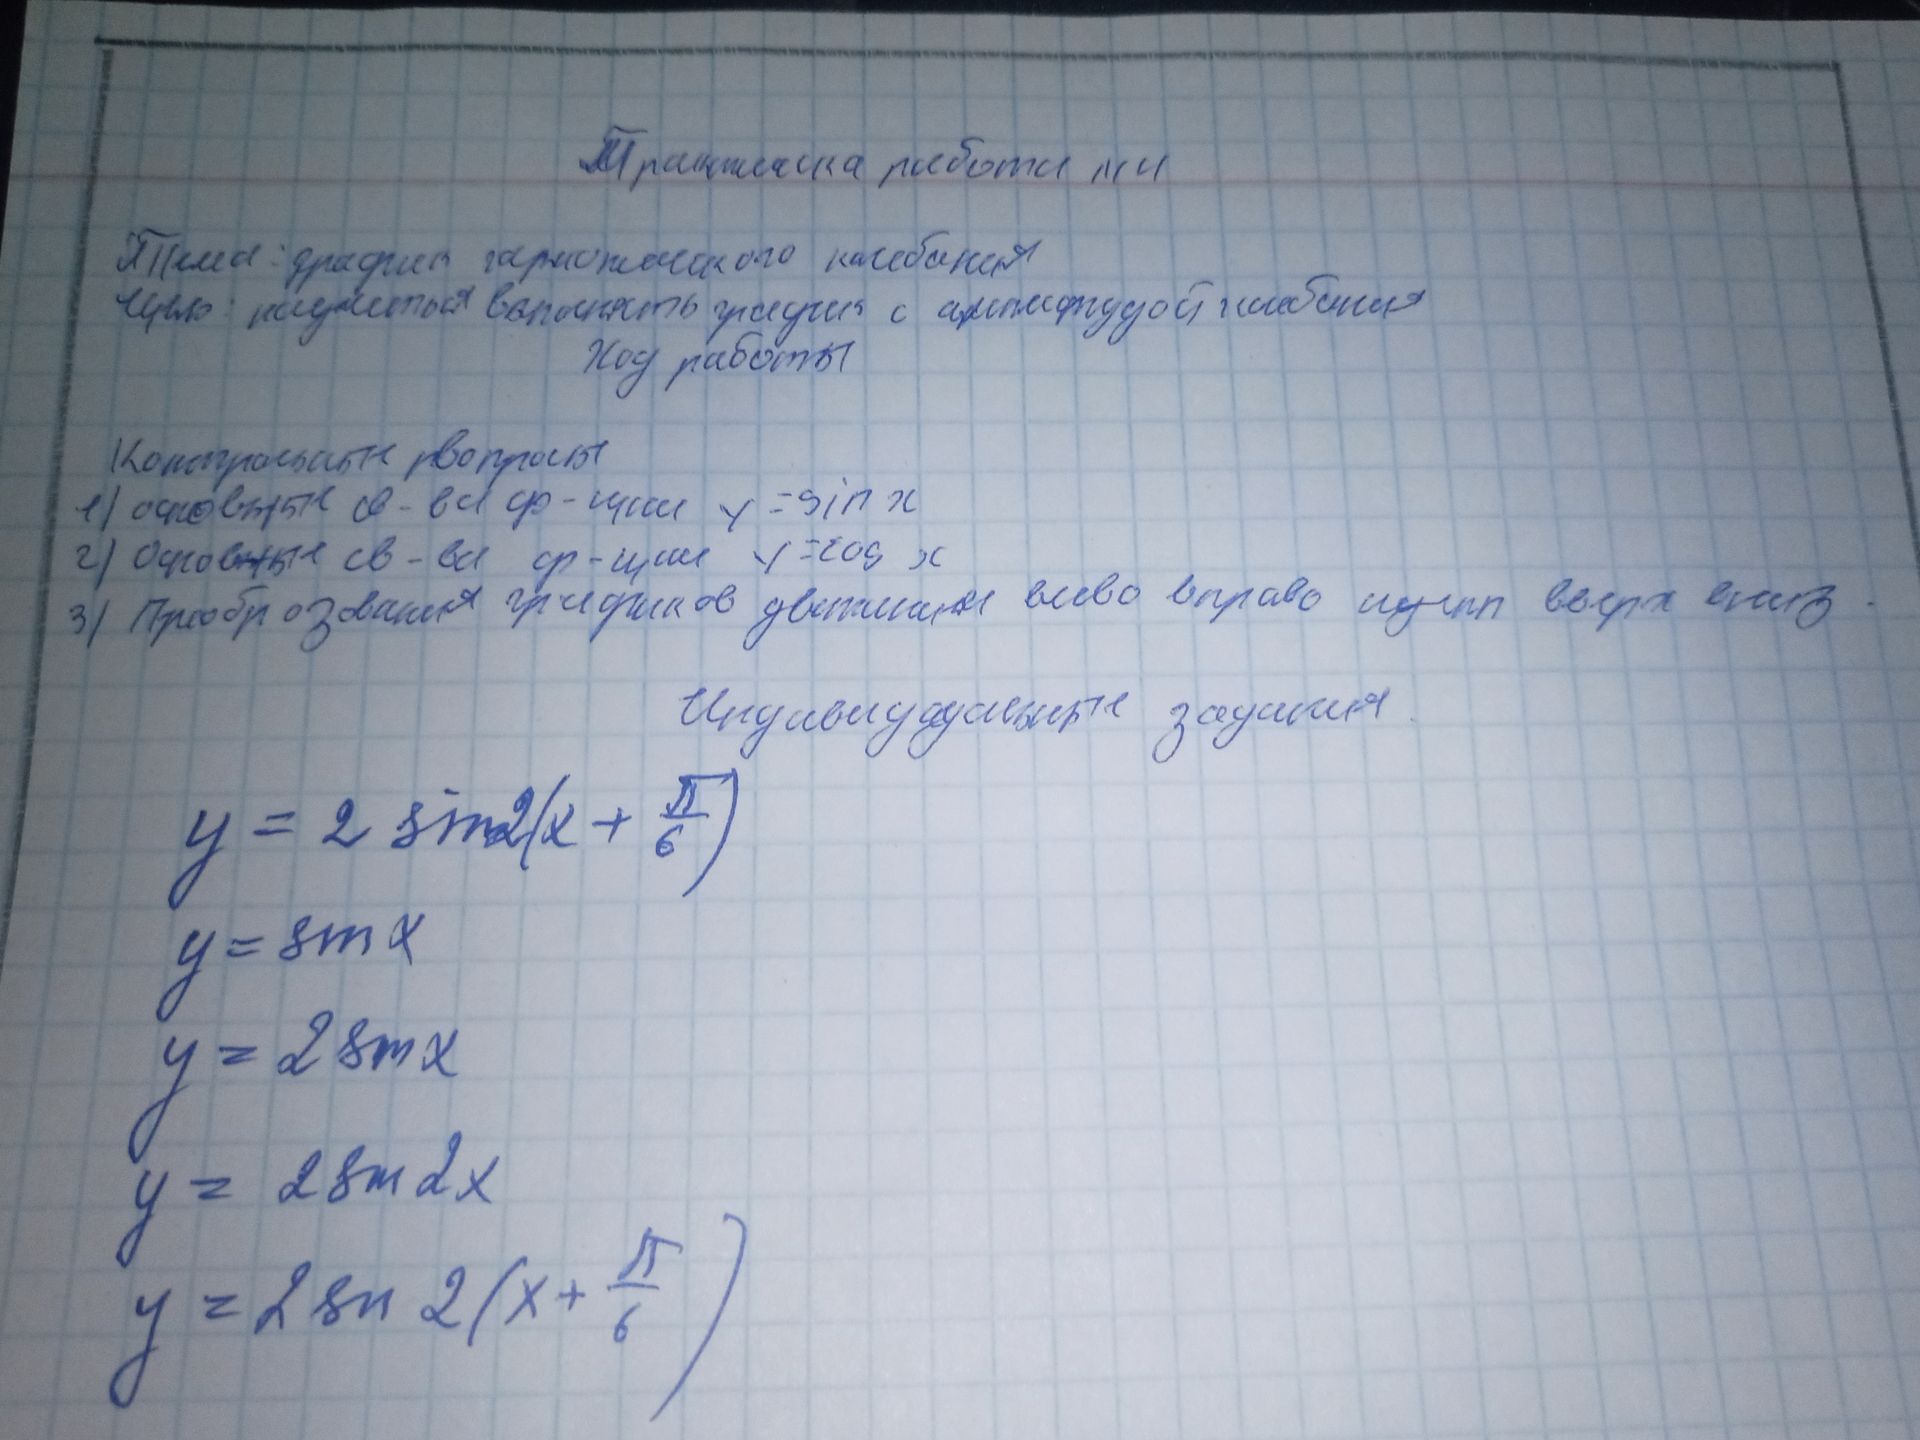 Практическа работа №4
Тема: график гармонического колебания
Цель: научиться выполнять график с амплитудой колебания
Ход работы
Контрольные вопросы
1) основные св-ва ф-ции y=sin x
2) Основные св-ва ф-ции y=cos x
3) Преобразования графиков движения влево вправо вверх вниз.
Индивидуальные задания.
y = 2 sin2(x + π/6)
y = sin x
y = 2 sin x
y = 2 sin 2x
y = 2 sin 2(x + π/6)